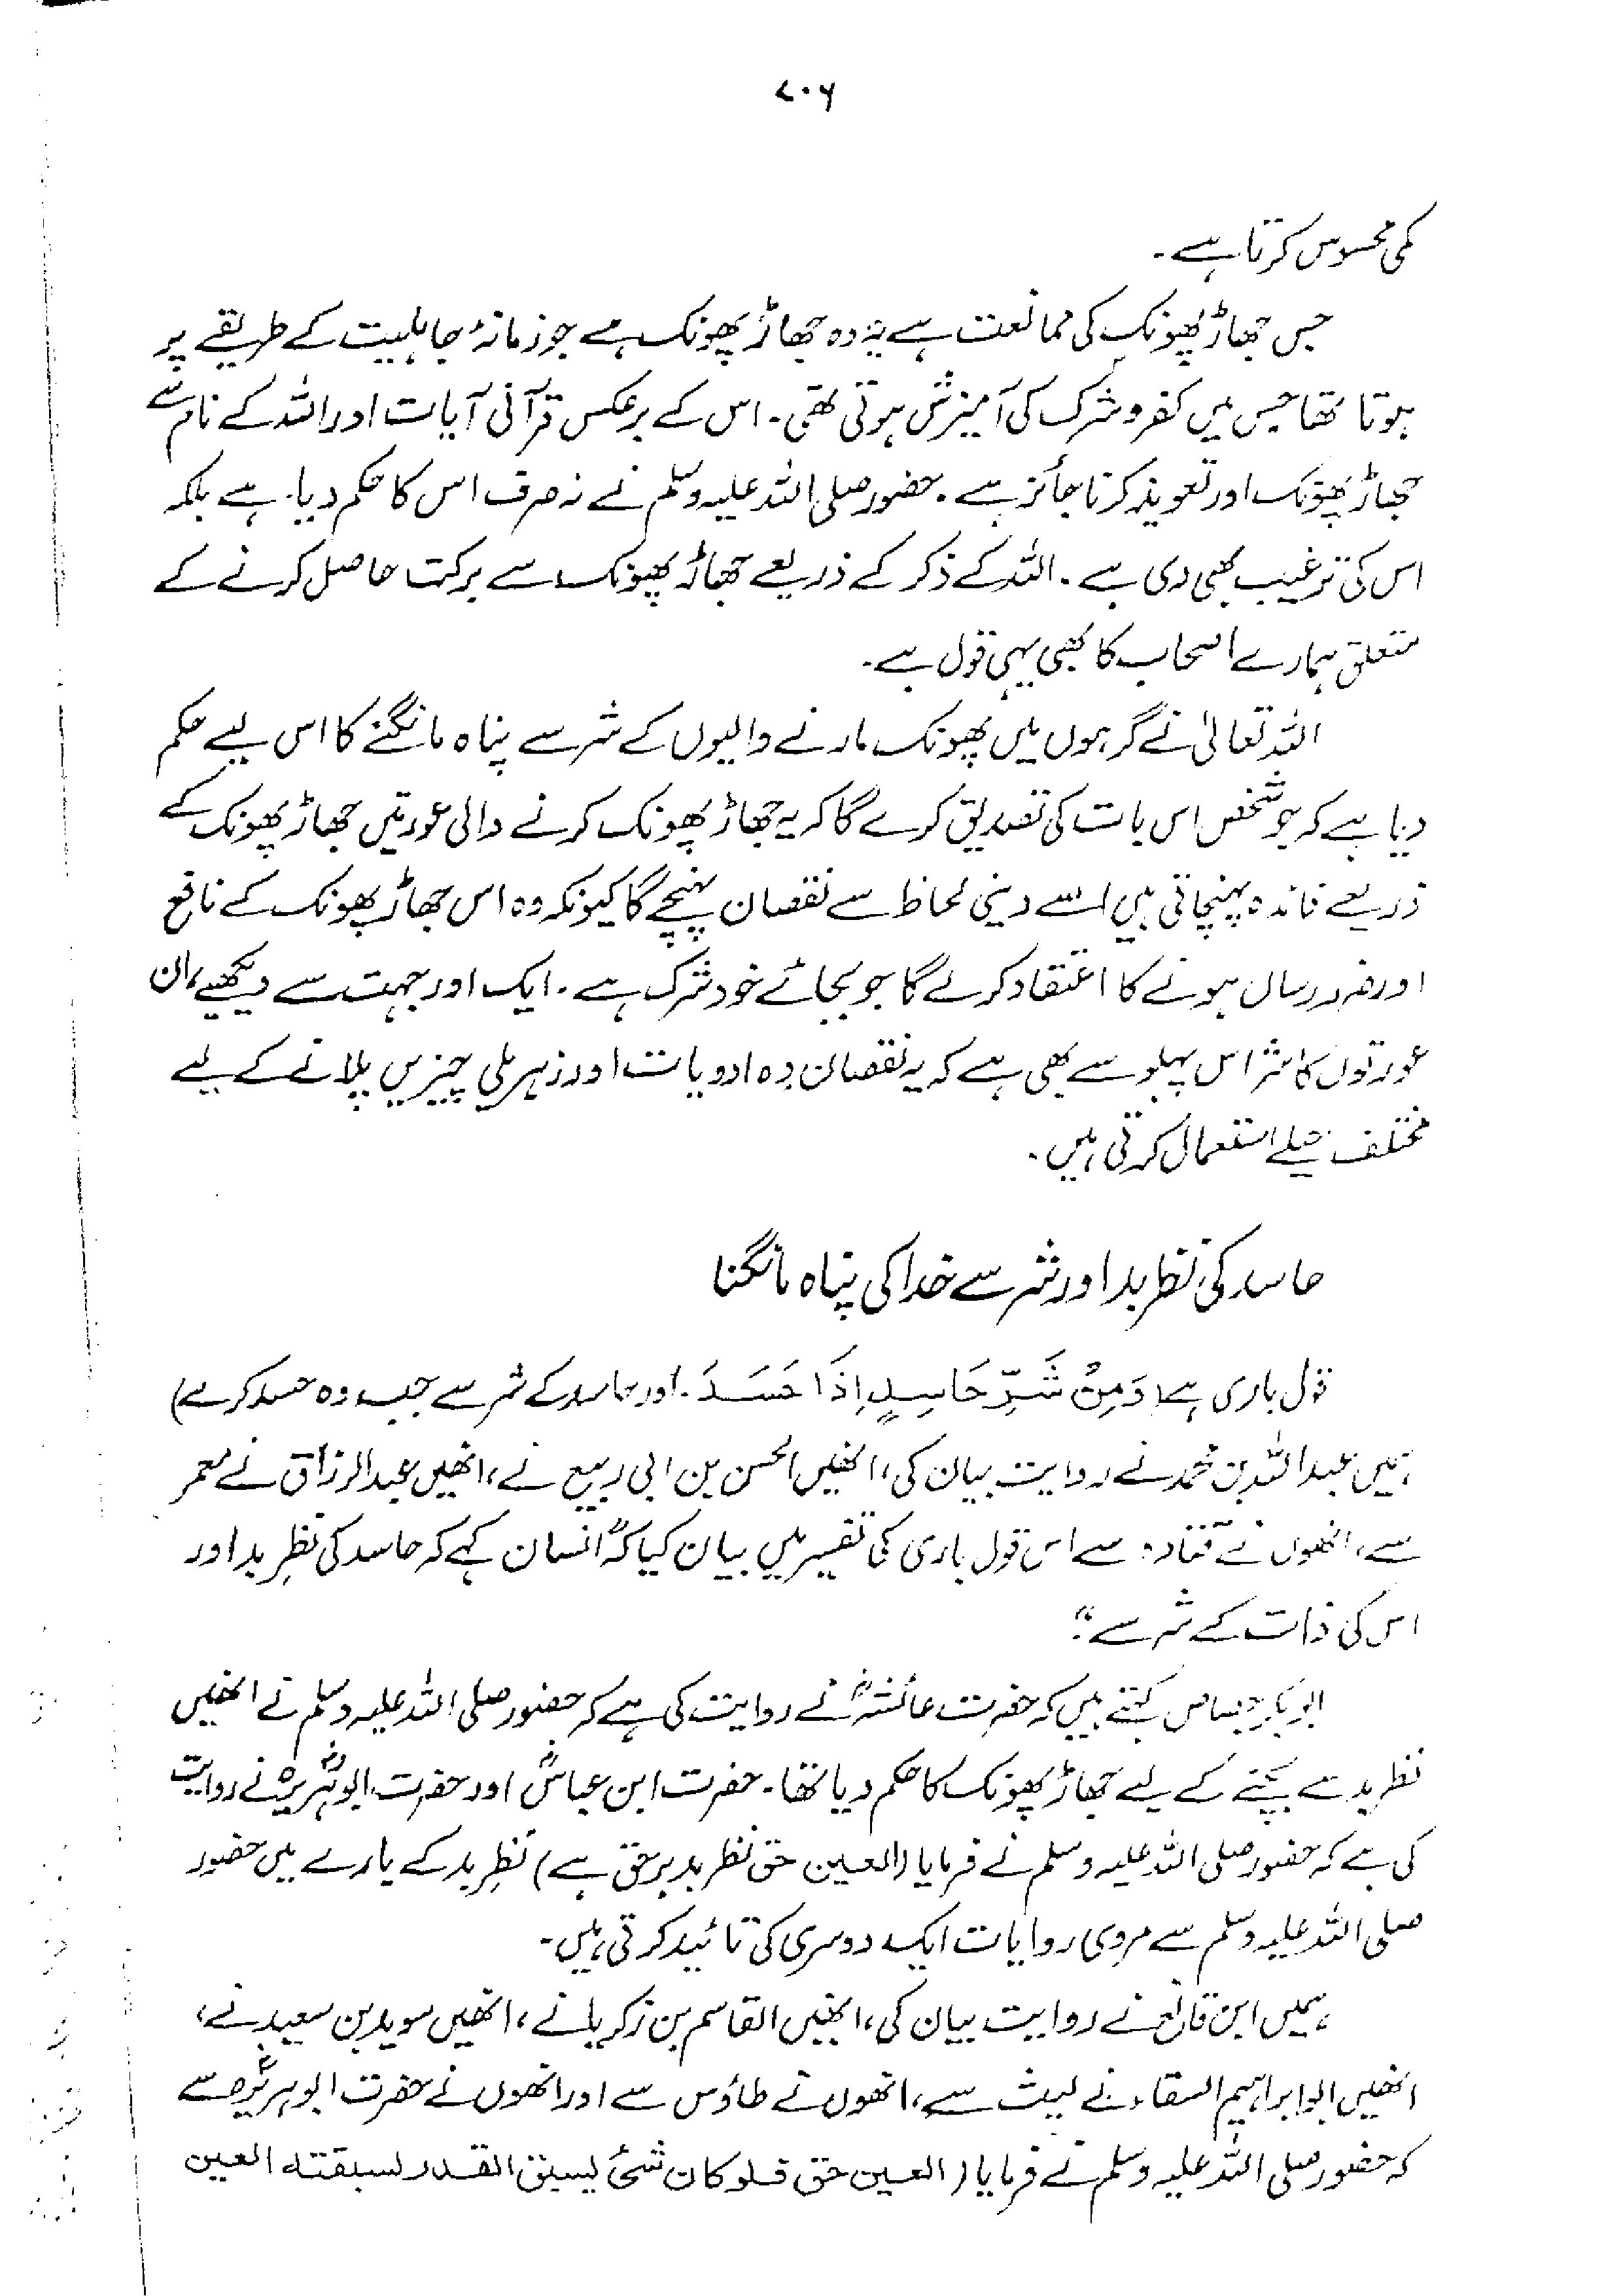 ۷۰۶
کمی محسوس کرتا ہے۔
جس جھاڑ پھونک کی ممانعت ہے یہ وہ جھاڑ پھونک ہے جو زمانۂ جاہلیت کے طریقے پر
ہوتا تھا جس میں کفر و شرک کی آمیزش ہوتی تھی۔ اس کے برعکس قرآنی آیات اور اللہ کے نام سے
جھاڑ پھونک اور تعویذ کرنا جائز ہے۔ حضور صلی اللہ علیہ وسلم نے نہ صرف اس کا حکم دیا ہے بلکہ
اس کی ترغیب بھی دی ہے۔ اللہ کے ذکر کے ذریعے جھاڑ پھونک سے برکت حاصل کرنے کے
متعلق ہمارے اصحاب کا بھی یہی قول ہے۔
اللہ تعالیٰ نے گرہوں میں پھونک مارنے والیوں کے شر سے پناہ مانگنے کا اس لیے حکم
دیا ہے کہ جو شخص اس بات کی تصدیق کرے گا کہ یہ جھاڑ پھونک کرنے والی عورتیں جھاڑ پھونک کے
ذریعے فائدہ پہنچاتی ہیں اسے دینی لحاظ سے نقصان پہنچے گا کیونکہ وہ اس جھاڑ پھونک کے نافع
اور ضرر رساں ہونے کا اعتقاد کرلے گا جو بجائے خود شرک ہے۔ ایک اور جہت سے دیکھیے، ان
عورتوں کا شر اس پہلو سے بھی ہے کہ یہ نقصان دہ ادویات اور زہریلی چیزیں پلانے کے لیے
مختلف حیلے استعمال کرتی ہیں۔
حاسد کی نظر بد اور شر سے خدا کی پناہ مانگنا
قول باری ہے (وَمِنْ شَرِّ حَاسِدٍ اِذَا حَسَدَ۔ اور حاسد کے شر سے جب وہ حسد کرے)
ہمیں عبداللہ بن محمد نے روایت بیان کی، انھیں الحسن بن ابی ربیع نے، انھیں عبدالرزاق نے معمر
سے، انھوں نے قتادہ سے اس قول باری کی تفسیر میں بیان کیا کہ "انسان کہے کہ حاسد کی نظرِ بد اور
اس کی ذات کے شر سے"۔
ابوبکر جصاص کہتے ہیں کہ حضرت عائشہؓ نے روایت کی ہے کہ حضور صلی اللہ علیہ وسلم نے انھیں
نظر بد سے بچنے کے لیے جھاڑ پھونک کا حکم دیا تھا۔ حضرت ابن عباسؓ اور حضرت ابوہریرہؓ نے روایت
کی ہے کہ حضور صلی اللہ علیہ وسلم نے فرمایا (العین حق نظر بد برحق ہے) نظرِ بد کے بارے میں حضور
صلی اللہ علیہ وسلم سے مروی روایات ایک دوسری کی تائید کرتی ہیں۔
ہمیں ابن قانع نے روایت بیان کی، انھیں القاسم بن زکریا نے، انھیں سوید بن سعید نے،
انھیں ابو ابراہیم السقاء نے لیث سے، انھوں نے طاؤس سے اور انھوں نے حضرت ابوہریرہؓ سے
کہ حضور صلی اللہ علیہ وسلم نے فرمایا (العین حق فلو کان شئ لیسبق القدر لسبقتہ العین